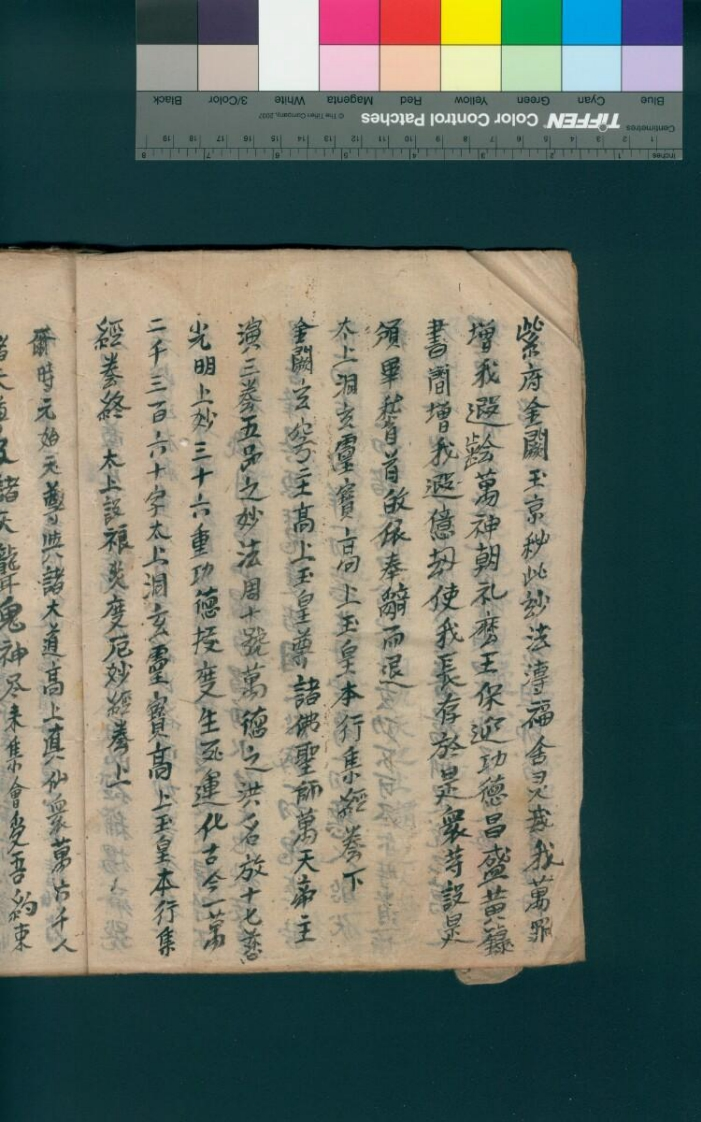 紫府金闕玉京秘此妙法淳福舍災我萬罪
增我遐齡萬神朝礼庅王保迎功德昌盛黄籙
書簡增我遐億劫使我長存於是衆等說是
須畢稽首敬依奉辭而退
太上洞玄靈寳高上玉皇本行集經卷下
金闕玄穹主高上玉皇尊諸佛聖師萬天帝主
演三卷五品之妙法周十號萬德之洪名放十七慈
光明上妙三十六重功德授度生死運化古今一萬
二千三百六十字太上洞玄靈寳高上玉皇本行集
經卷終 太上說禳災度厄妙經卷上
爾時元始天尊與諸大道高上真仙衆萬六千人
諸天尊及諸天龍鬼神尽來集會受吾約束
TIFFEN Color Control Patches
© The Tiffen Company, 2007
Centimetres
Inches
Blue Cyan Green Yellow Red Magenta White 3/Color Black
1 2 3 4 5 6 7 8 9 10 11 12 13 14 15 16 17 18 19
1 2 3 4 5 6 7 8